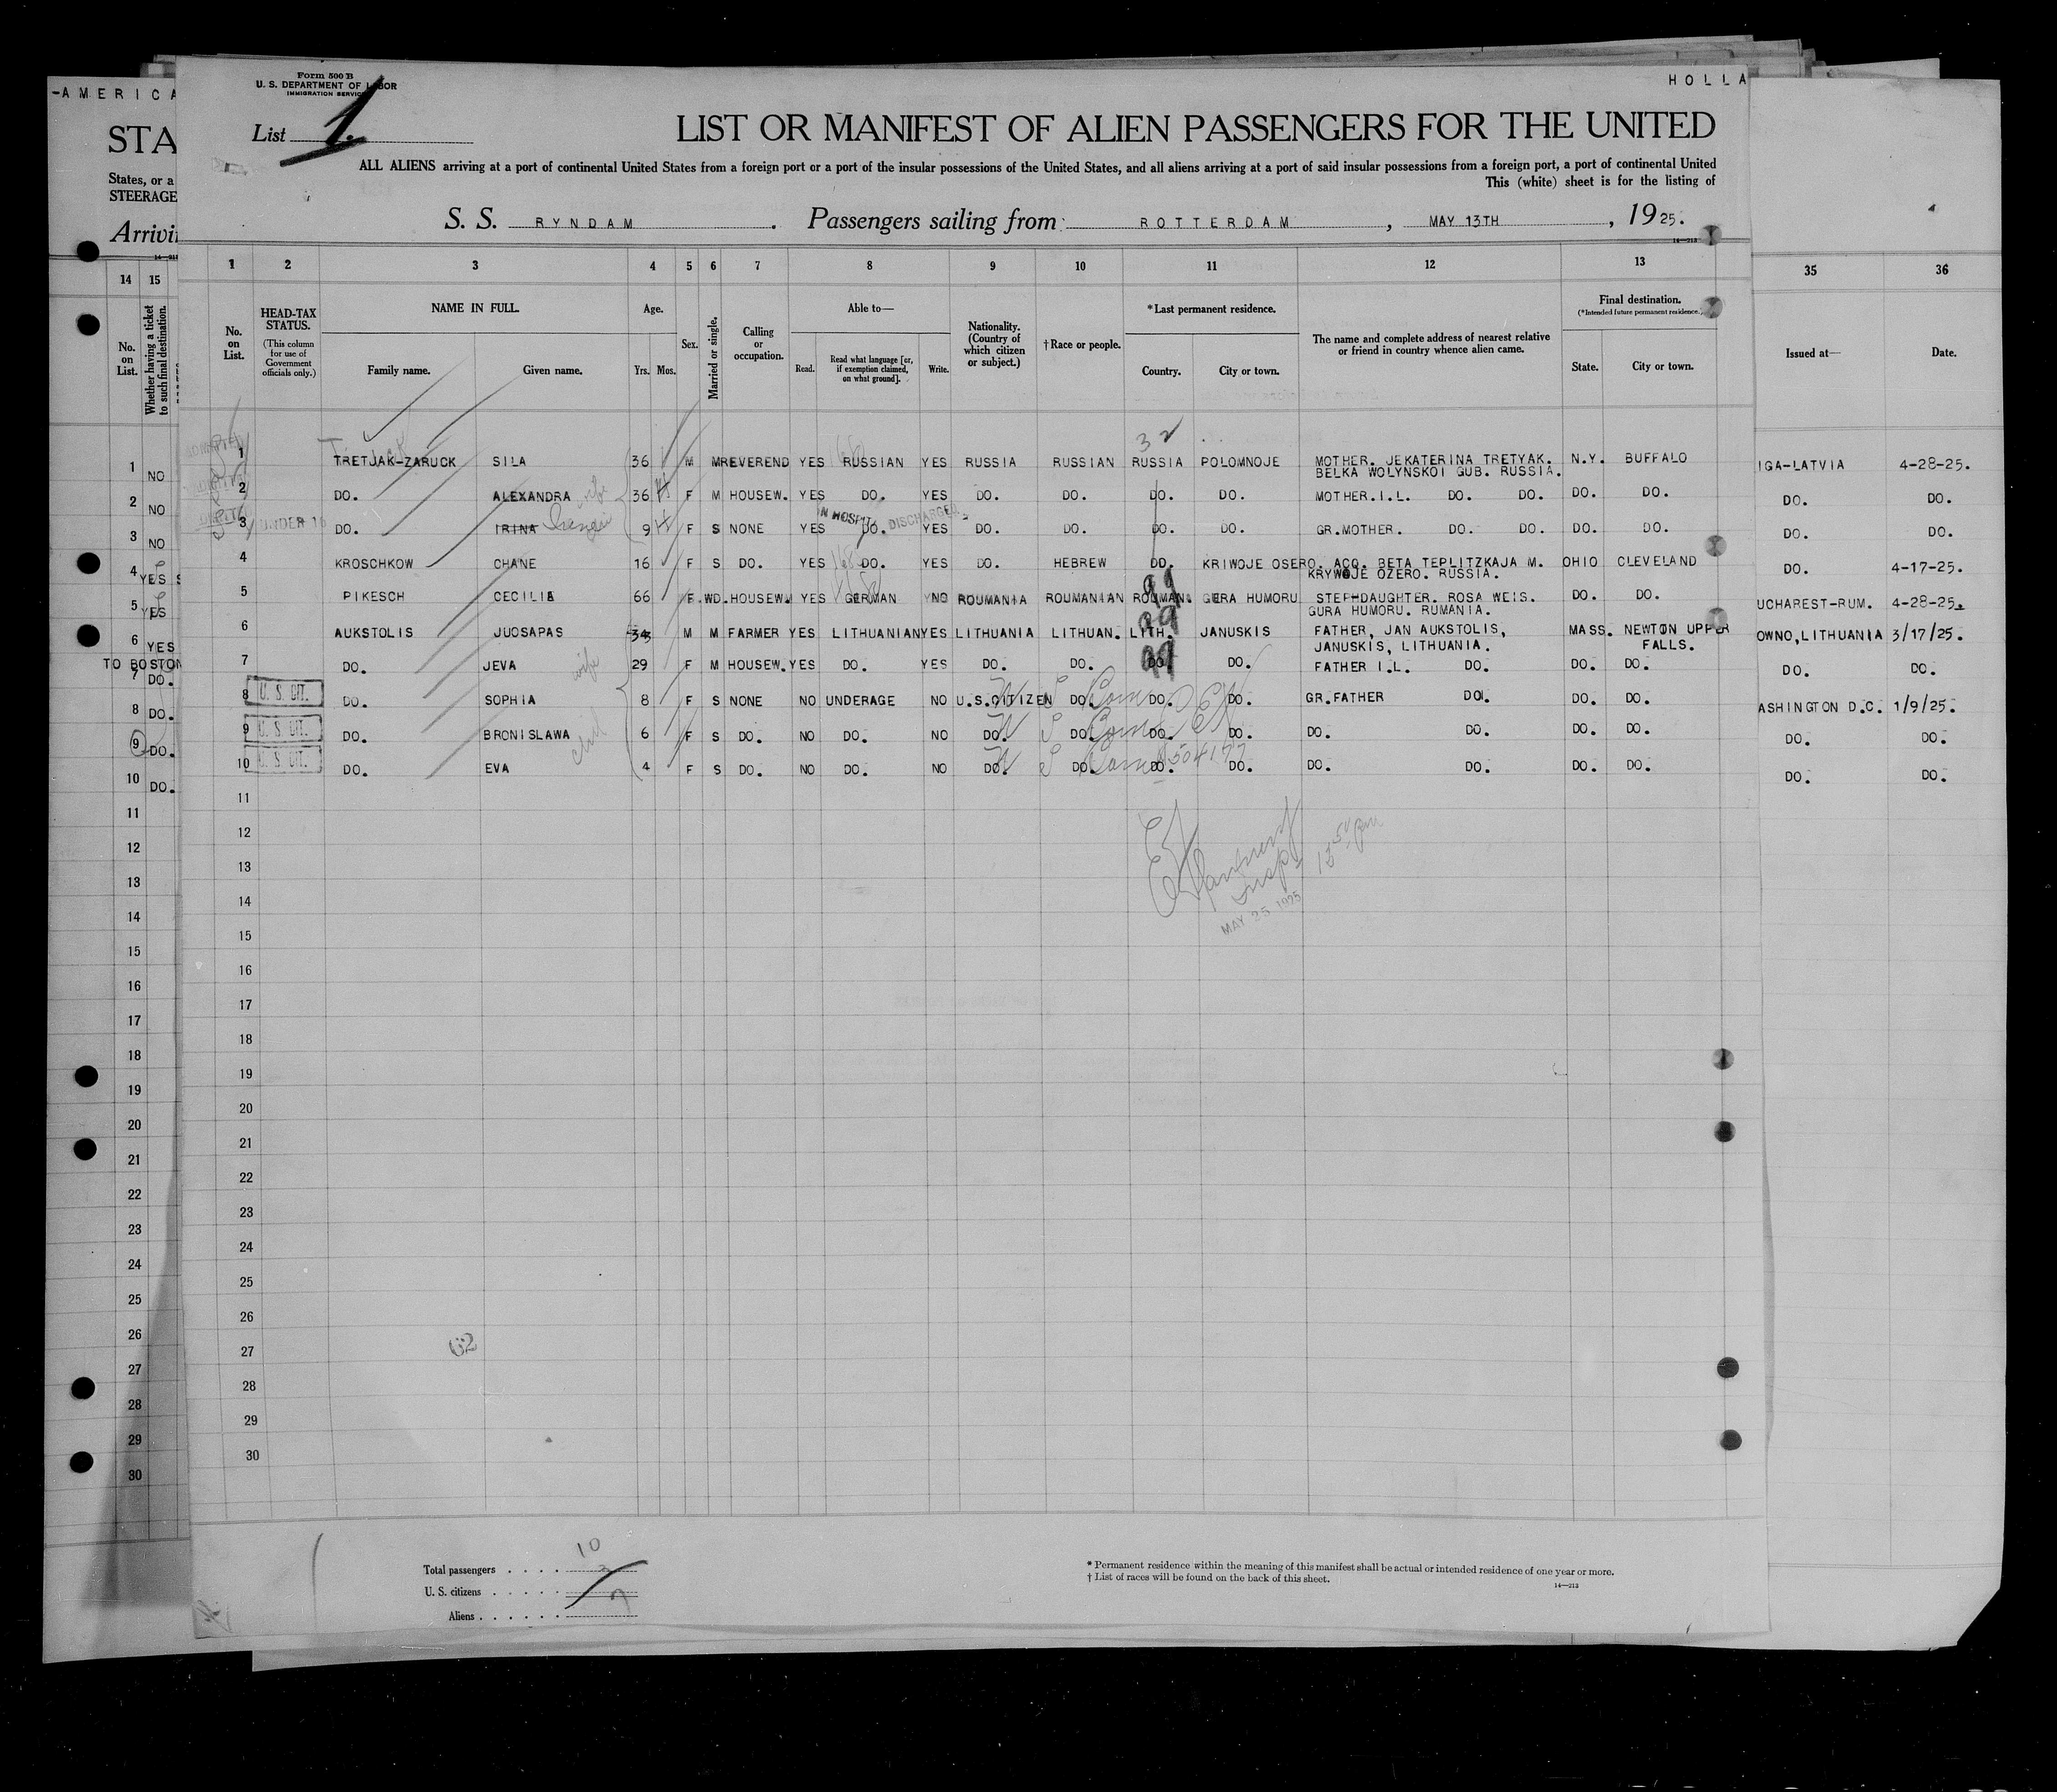 -AMERICA
STA
States, or a
STEERAGE
Arrivi
Form 500 B
U. S. DEPARTMENT OF LABOR
IMMIGRATION SERVICE
HOLLA
List 1.
LIST OR MANIFEST OF ALIEN PASSENGERS FOR THE UNITED
ALL ALIENS arriving at a port of continental United States from a foreign port or a port of the insular possessions of the United States, and all aliens arriving at a port of said insular possessions from a foreign port, a port of continental United
This (white) sheet is for the listing of
S. S. RYNDAM. Passengers sailing from ROTTERDAM, MAY 13TH, 1925.
14 15 1 2 3 4 5 6 7 8 9 10 11 12 13 35 36
No. on List. Whether having a ticket to such final destination.
No. on List. HEAD-TAX STATUS. (This column for use of Government officials only.) NAME IN FULL. Age. Sex. Married or single. Calling or occupation. Able to— Nationality. (Country of which citizen or subject.) †Race or people. *Last permanent residence. The name and complete address of nearest relative or friend in country whence alien came. Final destination. (*Intended future permanent residence.) Issued at— Date.
Family name. Given name. Yrs. Mos. Read. Read what language [or, if exemption claimed, on what ground]. Write. Country. City or town. State. City or town.
32
1 NO 1 TRETJAK-ZARUCK SILA 36 M M REVEREND YES RUSSIAN YES RUSSIA RUSSIAN RUSSIA POLOMNOJE MOTHER. JEKATERINA TRETYAK. N.Y. BUFFALO IGA-LATVIA 4-28-25.
BELKA WOLYNSKOI GUB. RUSSIA.
2 NO 2 DO. ALEXANDRA wife 36 F M HOUSEW. YES DO. YES DO. DO. DO. DO. MOTHER.I.L. DO. DO. DO. DO. DO. DO.
IN HOSPIT. DISCHARGED
3 NO 3 UNDER 16 DO. IRINA 9 F S NONE YES DO. YES DO. DO. DO. DO. GR.MOTHER. DO. DO. DO. DO. DO. DO.
4 YES 4 KROSCHKOW CHANE 16 F S DO. YES 168 DO. YES DO. HEBREW DO. KRIWOJE OSERO. ACQ. BETA TEPLITZKAJA M. OHIO CLEVELAND DO. 4-17-25.
KRYWOJE OZERO. RUSSIA.
5 YES 5 PIKESCH CECILIE 66 F WD. HOUSEW. YES GERMAN NO ROUMANIA ROUMANIAN ROUMAN. GURA HUMORU STEFHDAUGHTER. ROSA WEIS. DO. DO. UCHAREST-RUM. 4-28-25.
GURA HUMORU. RUMANIA.
6 YES 6 AUKSTOLIS JUOSAPAS 34 M M FARMER YES LITHUANIAN YES LITHUANIA LITHUAN. LITH. JANUSKIS FATHER, JAN AUKSTOLIS, MASS. NEWTON UPPER OWNO,LITHUANIA 3/17/25.
TO BOSTON JANUSKIS, LITHUANIA. FALLS.
7 DO. 7 DO. JEVA wife 29 F M HOUSEW. YES DO. YES DO. DO. DO. DO. FATHER I.L. DO. DO. DO. DO. DO.
8 DO. 8 U. S. CIT. DO. SOPHIA 8 F S NONE NO UNDERAGE NO U.S.CITIZEN DO. DO. DO. GR.FATHER DO. DO. DO. ASHINGTON D.C. 1/9/25.
9 DO. 9 U. S. CIT. DO. BRONISLAWA 6 F S DO. NO DO. NO DO. DO. DO. DO. DO. DO. DO. DO. DO. DO.
10 DO. 10 U. S. CIT. DO. EVA 4 F S DO. NO DO. NO DO. DO. DO. DO. DO. DO. DO. DO. DO. DO.
11 11
12 12
13 13
14 14
MAY 25 1925
15 15
16 16
17 17
18 18
19 19
20 20
21 21
22 22
23 23
24 24
25 25
26 26
27 27
62
28 28
29 29
30 30
Total passengers . . . . 10
U. S. citizens . . . . . 3
Aliens . . . . . . 7
* Permanent residence within the meaning of this manifest shall be actual or intended residence of one year or more.
† List of races will be found on the back of this sheet.
14—213